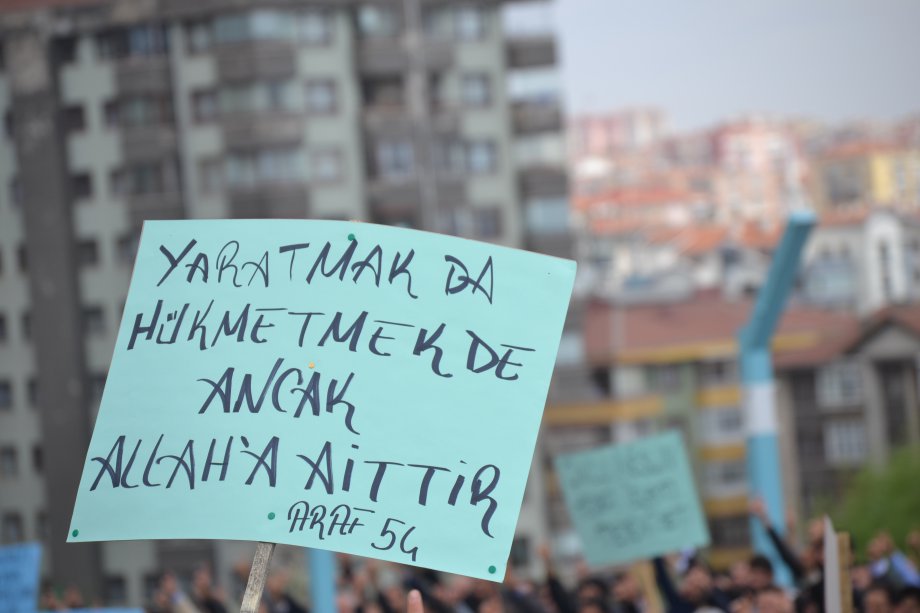 YARATMAK DA
HÜKMETMEKDE
ANCAK
ALLAH'A AİTTİR
ARAF 54